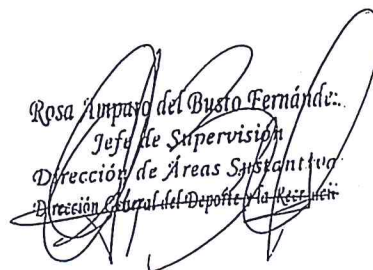 Rosa Amparo del Busto Fernández.
Jefe de Supervisión
Dirección de Áreas Sustantiva
Dirección General del Deporte y la Recreación